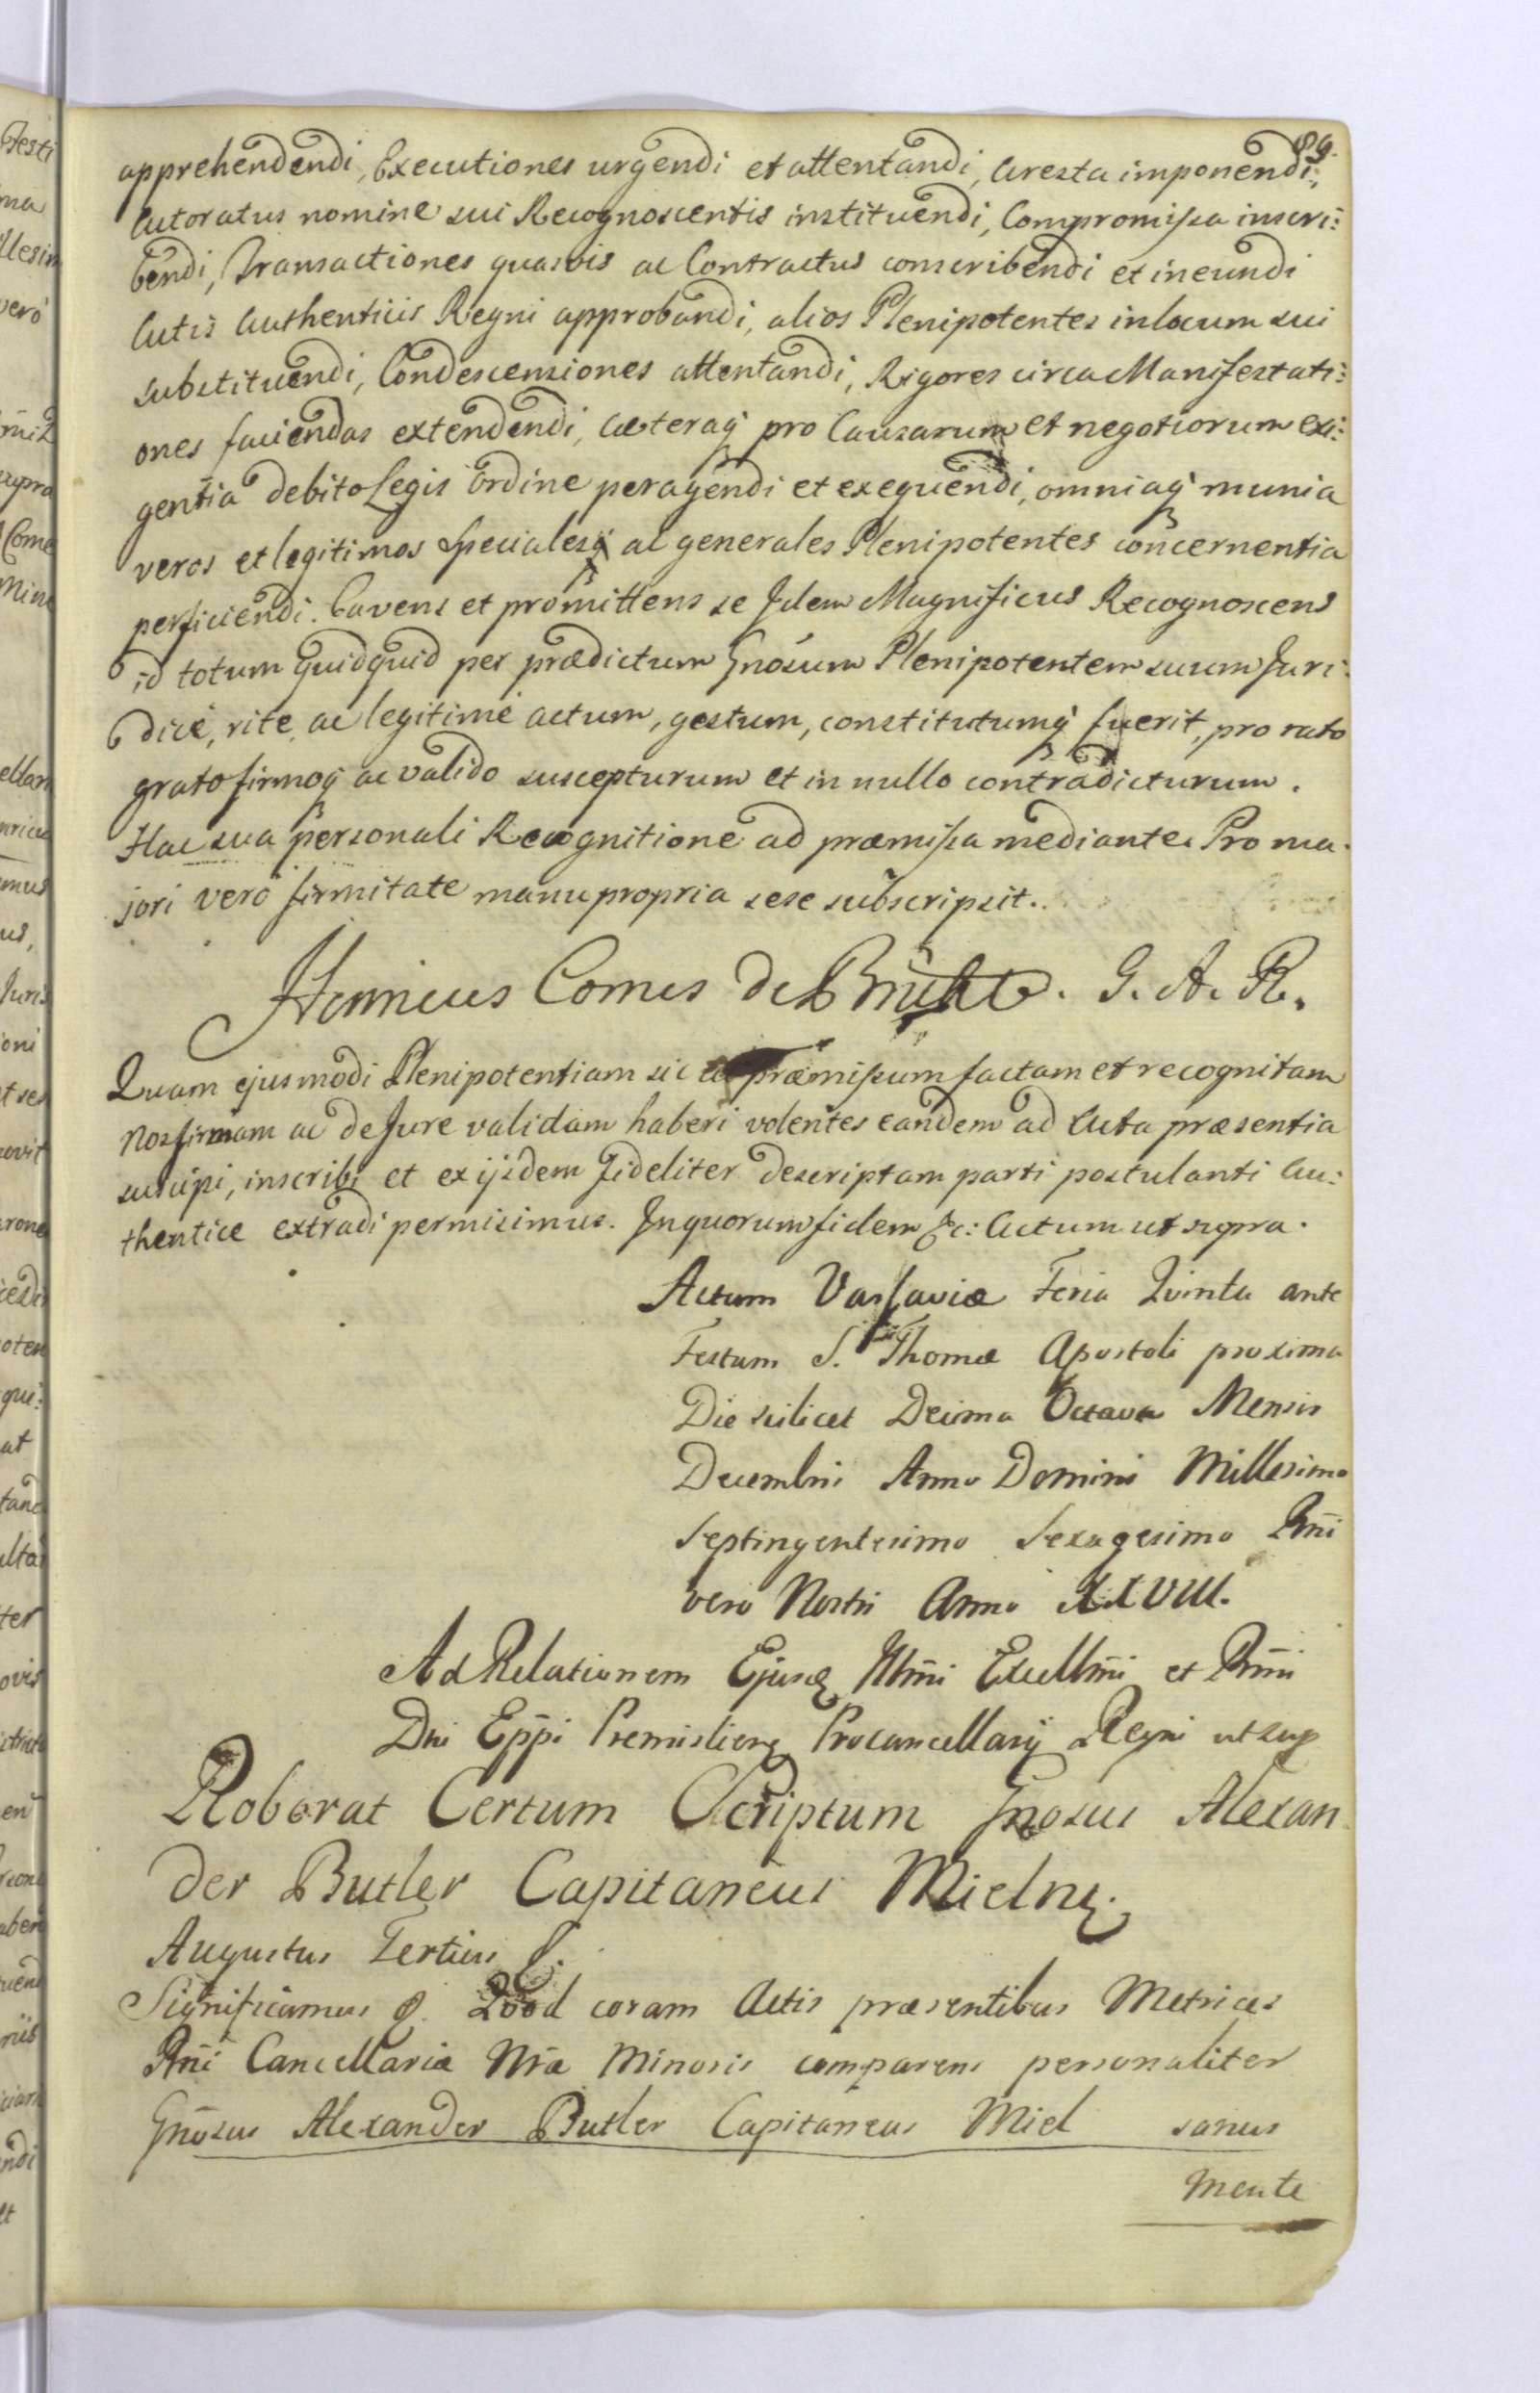 89.
apprehendendi, Executiones urgendi et attentandi, Aresta imponendi,
Actoratus nomine sui Recognoscentis instituendi, Compromissa inscri:
bendi, Transactiones quasvis ac Contractus conscribendi et ineundi
Actis Authenticis Regni approbandi, alios Plenipotentes in locum sui
substituendi, Condescensiones attentandi, Rigores circa Manifestati:
ones faciendas extendendi, cæteraq pro Causarum et negotiorum exi:
gentia debito Legis ordine peragendi et exequendi, omniaq munia
veros et legitimos Specialesq ac generales Plenipotentes concernentia
perficiendi. Cavens et promittens se Idem Magnificus Recognoscens
id totum quidquid per prædictum Gnosum Plenipotentem suum Juri:
dicè, rite, ac legitimè actum, gestum, constitutumq fuerit, pro rato
grato firmoq ac valido suscepturum et in nullo contradicturum.
Hac sua personali Recognitione ad præmissa mediante. Pro ma:
jori verò firmitate manu propria sese subscripsit.
Henricus Comes de Brühl. G. A. R.
Quam ejusmodi Plenipotentiam sic ut præmissum factam et recognitam
Nos firmam ac de Jure validam haberi volentes eandem ad Acta præsentia
suscipi, inscribi et ex ijsdem fideliter descriptam parti postulanti Au:
thentice extradi permisimus. In quorum fidem &c: Actum ut supra.
Actum Varsaviæ Feria Quinta ante
Festum S. Thomæ Apostoli proxima
Die scilicet Decima Octava Mensis
Decembris Anno Domini Millesimo
Septingentesimo Sexagesimo Rñi
vero Nostri Anno XXVIII.
Ad Relationem Ejusd Illmi Excellmi et Rmi
Dni Eppi Premislien Procancellarij Regni ut sup
Roborat Certum Scriptum Gnosus Alexan
der Butler Capitaneus Mieln.
Augustus Tertius &.
Significamus &. Quod coram Actis præsentibus Metrices
Rñi Cancellariæ Nræ Minoris comparens personaliter
Gnosus Alexander Butler Capitaneus Miel sanus
mente